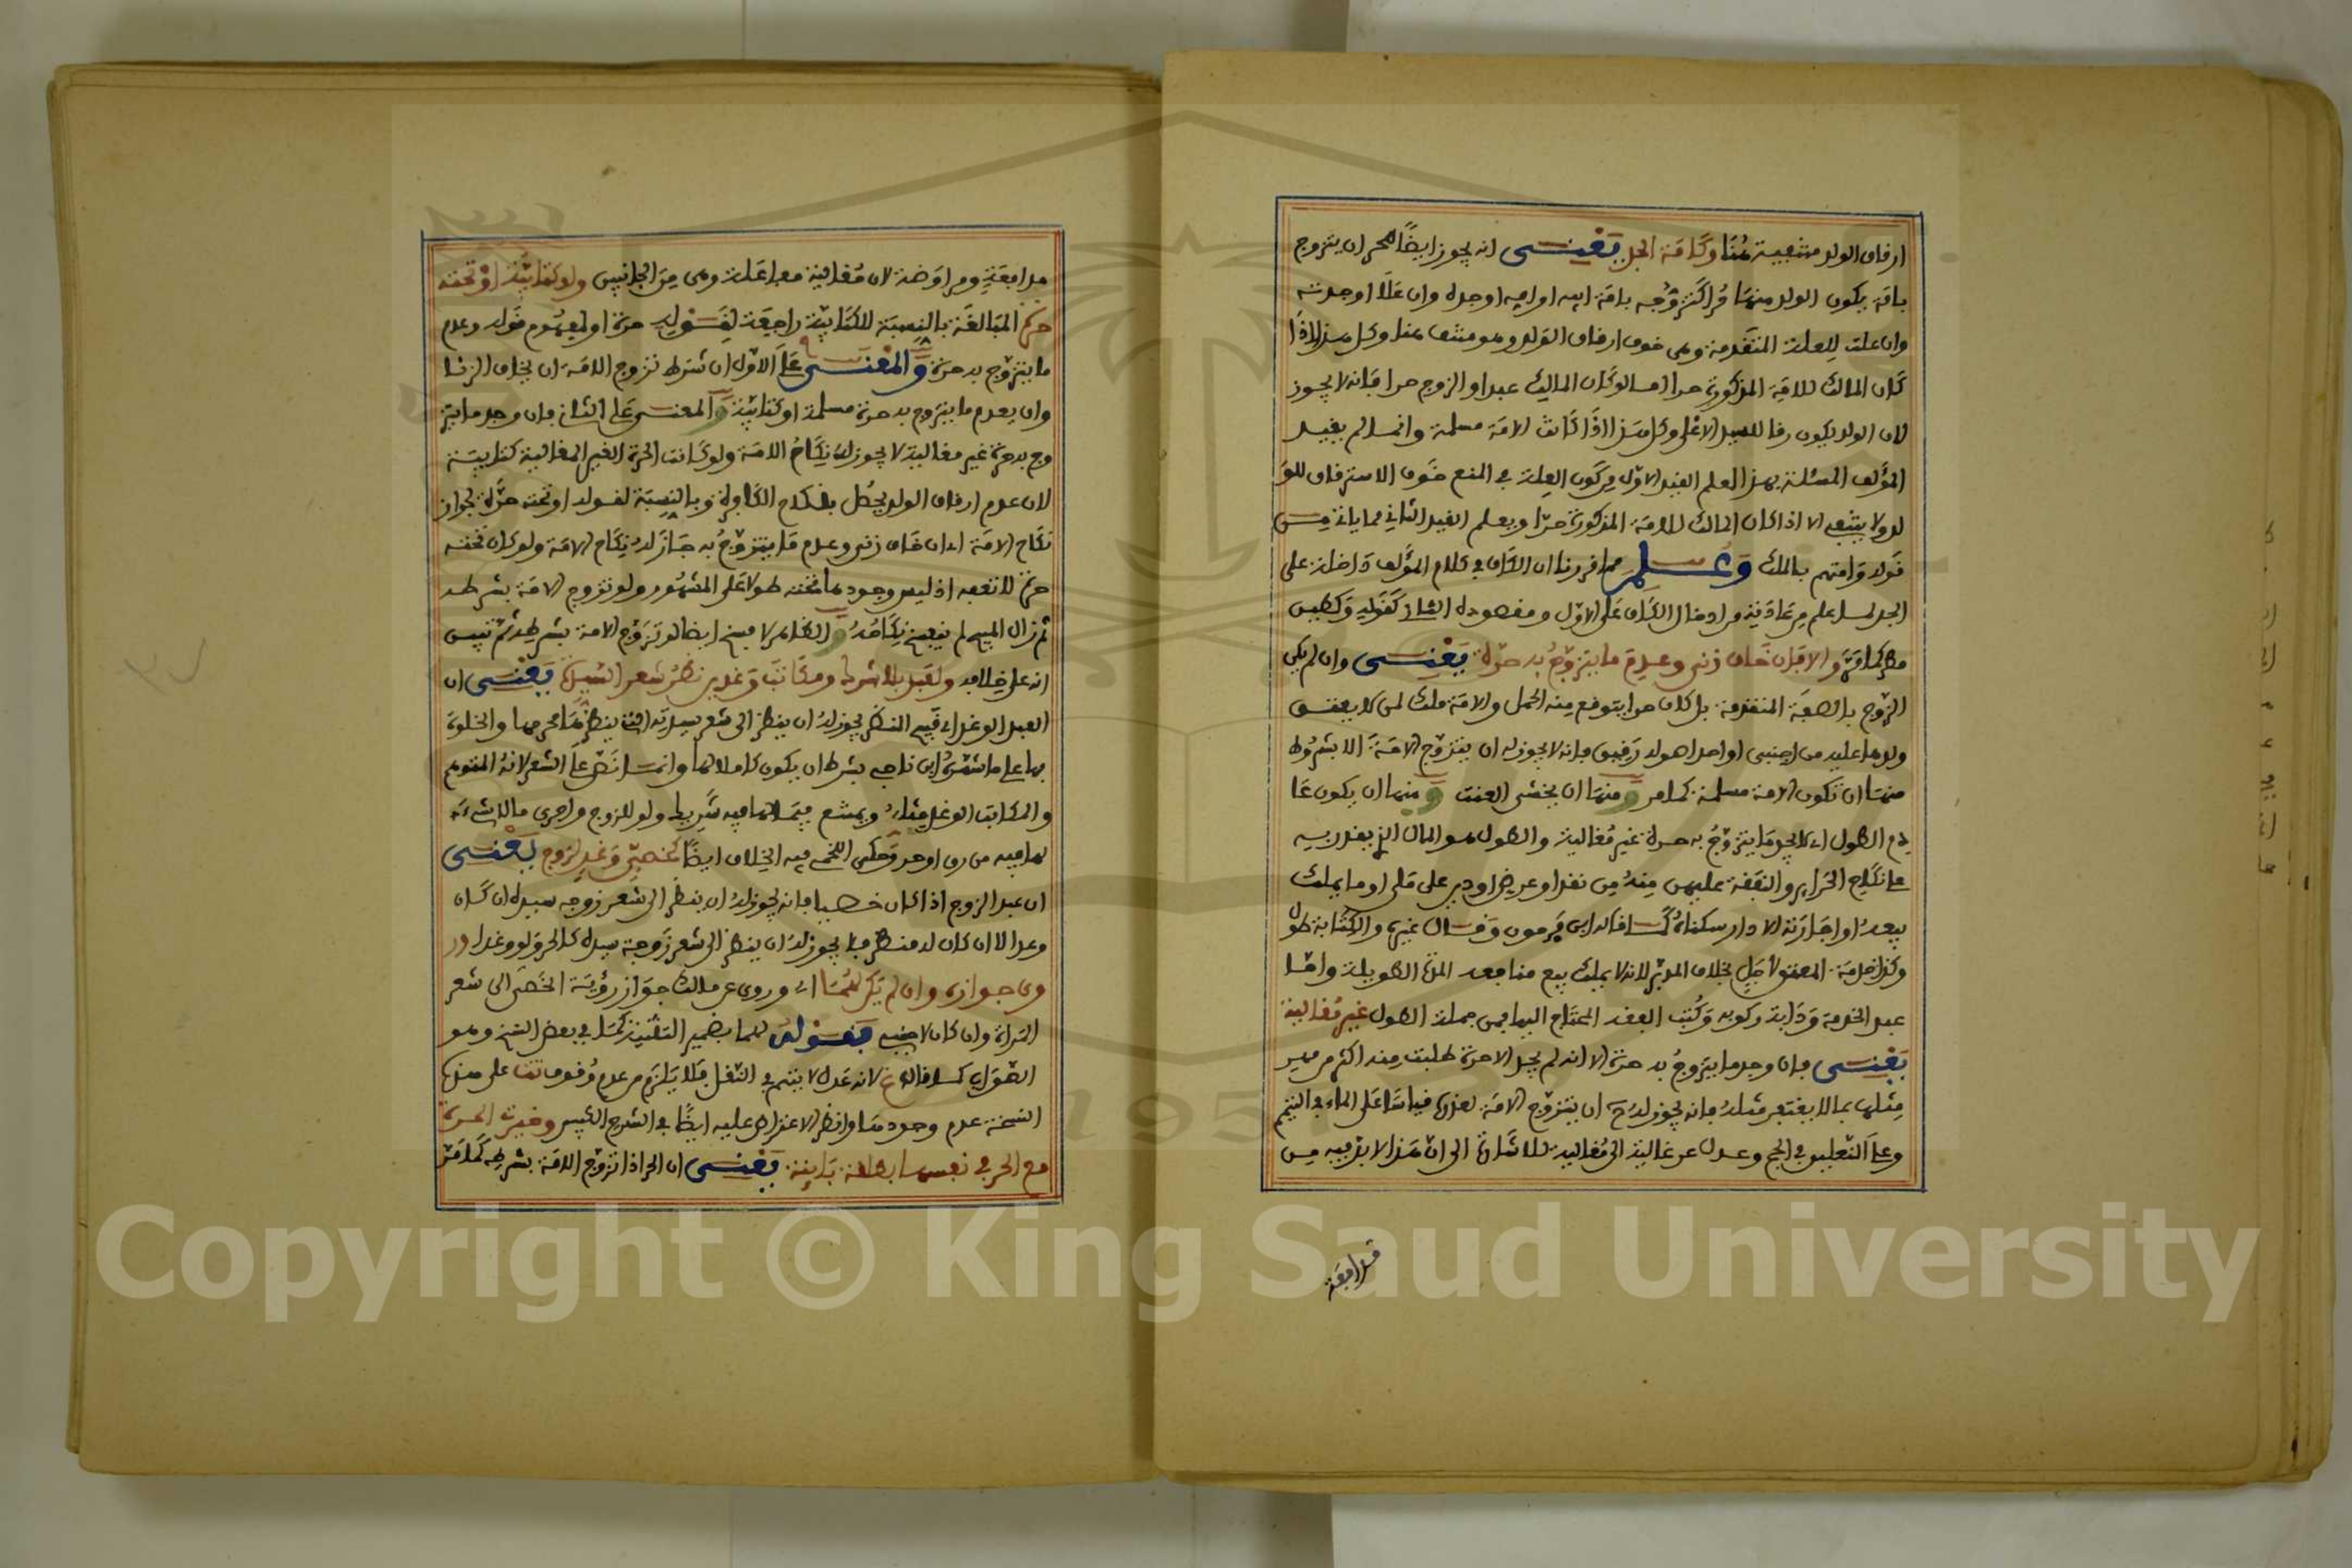 ارقاق الولد منتفية هنا وكامة الجد يعنى انه يجوز ايضا للحر ان يتزوج
بامة يكون الولد منها حرا كتزوجه بامة ابيه او امه او جده وان علا او جدته
وان علت للعلة المتقدمة وهي خوف ارقاق الولد وهو منتف هنا وكل هذا اذا
كان المالك للامة المذكورة حرا اما لو كان المالك عبدا والزوج حرا فانه لا يجوز
لان الولد يكون رقا للسيد الاعلى وكل هذا اذا كانت الامة مسلمة وانما لم يقيد
المؤلف المسئلة بهذا لعلم القيد الاول من كون العلة في المنع خوف الاسترقاق للو
لد ولا ينتفي الا اذا كان المالك للامة المذكورة حرا ويعلم القيد الثاني مما ياتي من
قوله وامتهم بالملك وعلم مما قررنا ان الكاف في كلام المؤلف داخلة على
الجد لما علم من عادته من ادخال الكاف على الاول ومقصوده الثاني كقوله وكطين
مطر كامة والا فان خاف زنى وعدم ما يتزوج به حرة يعنى وان لم يكن
الزوج بالصفة المتقدمة بل كان حرا يتوقع منه الحمل والامة ملك لمن لا يعتق
ولدها عليه من اجنبي او احد اصوله رقيق فانه لا يجوز له ان يتزوج الامة الا بشروط
منها ان تكون الامة مسلمة كما مر ومنها ان يخشى العنت ومنها ان يكون عا
دم الطول اي لا يجد ما يتزوج به حرة غير مغالية والطول هو المال الذي يقدر به
على نكاح الحراير والنفقة عليهن منه من نقد او عرض او دين على ملي او ما يملك
بيعه او اجارته الا دار سكناه كما قاله ابن فرحون وقال غيره والكتابة طول
وكذا خدمة المعتق لاجل بخلاف المدبر لانه لا يملك بيع منافعه المدة الطويلة واما
عبد الخدمة ودابة ركوبه وكتب الفقه المحتاج اليها فمن جملة الطول غير مغالية
يعنى فان وجد ما يتزوج به حرة الا انه لم يجد الا حرة طلبت منه اكثر من مهر
مثلها بما لا يغتفر مثله فانه يجوز له ح ان يتزوج الامة لعذره قياسا على الماء في التيمم
وعلى النعلين في الحج وعدل عن غالية الى مغالية للاشارة الى ان هذا لا بد فيه من
مدافعة
مدافعة ومراوضة لان مغالية مفاعلة وهي من الجانبين ولو كتابية او تحته
حرة المبالغة بالنسبة للكتابية راجعة لقوله حرة او لمفهوم قوله وعدم
ما يتزوج به حرة والمعنى على الاول ان شرط تزوج الامة ان يخاف الزنا
وان يعدم ما يتزوج به حرة مسلمة او كتابية والمعنى على الثاني فان وجد ما يتز
وج به حرة غير مغالية لا يجوز له نكاح الامة ولو كانت الحرة الغير المغالية كتابية
لان عدم ارقاق الولد يحصل بنكاح الكافرة وبالنسبة لقوله او تحته حرة لجواز
نكاح الامة اي ان خاف زنى وعدم ما يتزوج به جاز له نكاح الامة ولو كان تحته
حرة لا تعفه اذ ليس وجودها تحته طولا على المشهور ولو تزوج الامة بشرطه
ثم زال المبيح لم ينفسخ نكاحه والظاهر لا فسخ ايضا لو تزوج الامة بشرطه ثم تبين
انه على خلافه ولعبد بلا شرك ومكاتب وغدين نظر شعر السيدة يعنى ان
العبد الوغد اي قبيح المنظر يجوز له ان ينظر الى شعر سيدته التي ينظرها محرمها والخلوة
بها على ما شهره ابن ناجي بشرط ان يكون كاملا لها وانما نص على الشعر لانه المتوهم
والمكاتب الوغد مثله ويمتنع فيما لها فيه شريك ولو للزوج واحرى مالا شيء
لها فيه من رق او حر وحكى اللخمي فيه الخلاف ايضا كخصي وغد لزوج يعنى
ان عبد الزوج اذا كان خصيا فانه يجوز له ان ينظر الى شعر زوجة سيده ان كان
وغدا لا ان كان له منظر فلا يجوز له ان ينظر الى شعر زوجة سيده كالحر ولو وغدا ور
وي جوازه وان لم يكن لهما اي وروي عن مالك جواز رؤية الخصي الى شعر
المراة وان كان لاجنبي فقوله لهما بضمير التثنية كما في بعض النسخ وهو
الصواب كما قاله غ لانه عدل لا يتهم في النقل فلا يلزم من عدم وقوف تت على هذه
النسخة عدم وجودها وانظر الاعتراض عليه ايضا في الشرح الكبير وخيرت الحرة
مع الحر في نفسها بطلقة باينة يعنى ان الحر اذا تزوج الامة بشرطه كما مر
Copyright © King Saud University
195